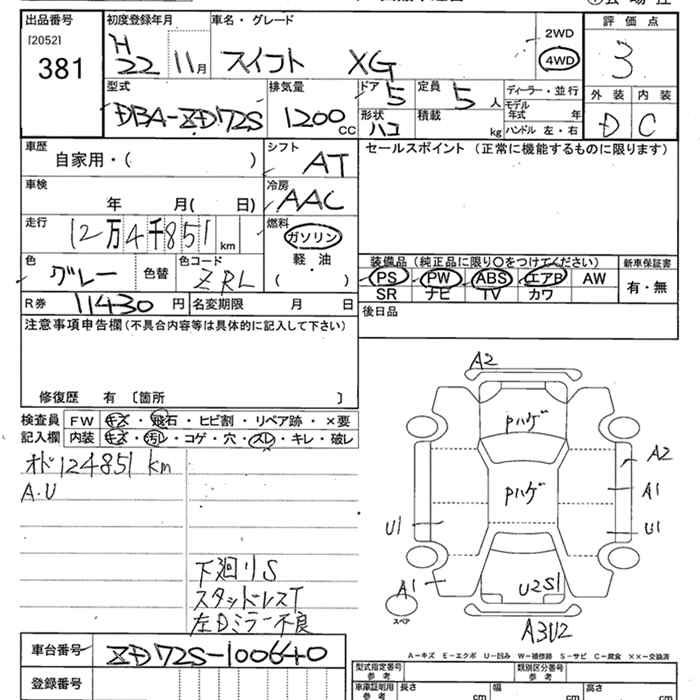 出品番号 初度登録年月 車名・グレード 評価点
[2052]
381
H22 11月 スイフト XG 2WD 4WD 3
型式 排気量 ドア 5 定員 5人 ディーラー・並行 外装 内装
DBA-ZD72S 1200CC 形状 ハコ 積載 kg モデル年式 年 D C
ハンドル 左・右
車歴 シフト セールスポイント (正常に機能するものに限ります)
自家用・( ) AT
車検 冷房
年 月( 日) AAC
走行 燃料
12万4千851km ガソリン
軽・油
( )
色 グレー 色替 色コード ZRL
装備品 (純正品に限り○をつけてください) 新車保証書
PS PW ABS エアB AW 有・無
SR ナビ TV カワ
R券 11430円 名変期限 月 日 後日品
注意事項申告欄 (不具合内容等は具体的に記入して下さい)
修復歴 有 [箇所 ]
検査員 FW キズ・飛石・ヒビ割・リペア跡・×要
記入欄 内装 キズ・汚レ・コゲ・穴・スレ・キレ・破レ
オド124851km
A.U
下廻りS
スタッドレスT
左Dミラー不良
A2
Pハゲ
A2
Pハゲ
A1
U1
U1
A1
U2S1
スペア
A3U2
A-キズ E-エクボ U-凹み W-補修跡 S-サビ C-腐食 ××-交換済
車台番号 ZD72S-100640
型式指定番号 参考 類別区分番号 参考
登録番号
車庫証明用 参考 長さ cm 幅 cm 高さ cm